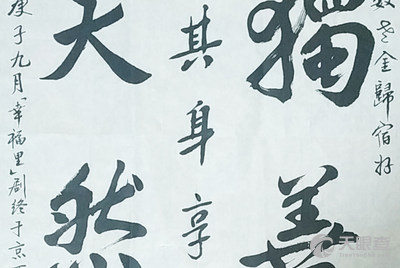 老金歸宿好
獨善
其身享
天然
庚子九月幸福里劇终于京
天眼查